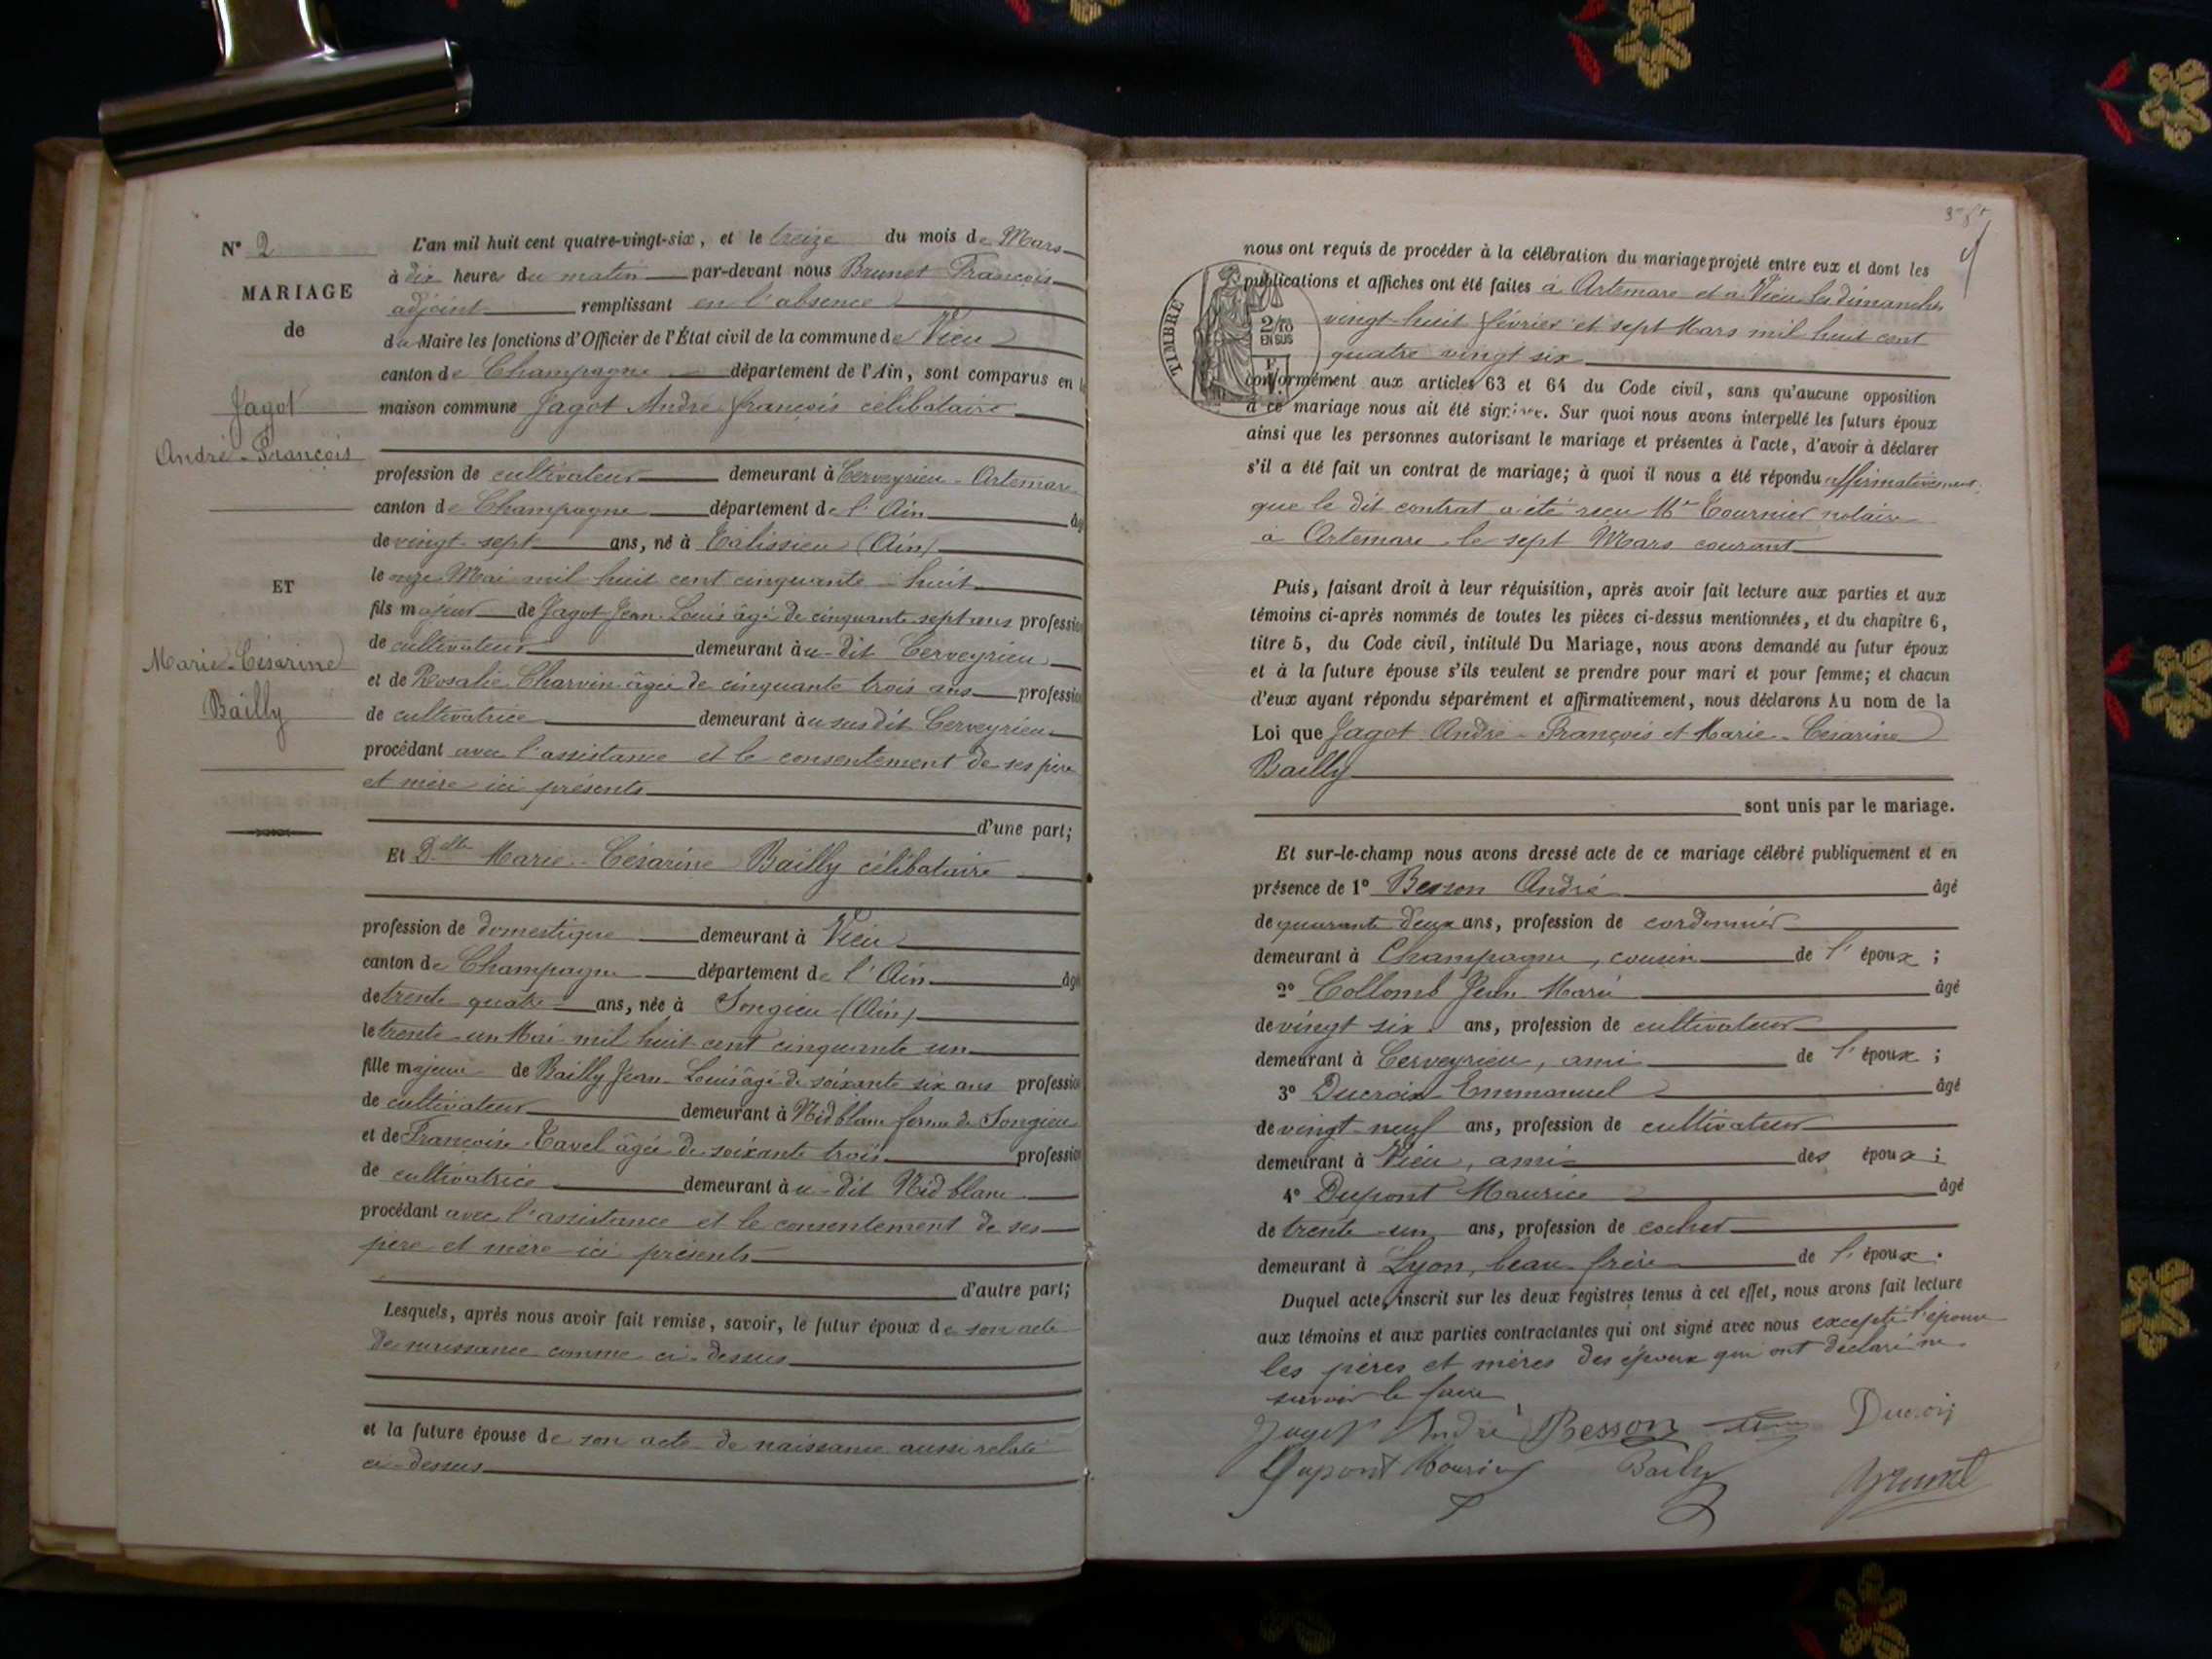 N° 2
MARIAGE
de
Jagot
André-François
ET
Marie-Césarine
Bailly
L'an mil huit cent quatre-vingt-six, et le treize du mois de Mars
à dix heures du matin par-devant nous Brunet François
adjoint remplissant en l'absence
du Maire les fonctions d'Officier de l'État civil de la commune de Vieu
canton de Champagne département de l'Ain, sont comparus en la
maison commune Jagot André François célibataire
profession de cultivateur demeurant à Cerveyrieu-Artemare
canton de Champagne département de l'Ain âg
de vingt-sept ans, né à Talissieu (Ain)
le onze Mai mil huit cent cinquante-huit
fils majeur de Jagot Jean-Louis âgé de cinquante sept ans profession
de cultivateur demeurant àu-dit Cerveyrieu
et de Rosalie Charvin âgée de cinquante trois ans profession
de cultivatrice demeurant àu susdit Cerveyrieu
procédant avec l'assistance et le consentement de ses père
et mère ici présents
d'une part;
Et Delle Marie-Césarine Bailly célibataire
profession de domestique demeurant à Vieu
canton de Champagne département de l'Ain âgé
de trente quatre ans, née à Songieu (Ain)
le trente-un Mai mil huit cent cinquante un
fille majeure de Bailly Jean-Louis âgé de soixante six ans profession
de cultivateur demeurant à Nidblanc ferme de Songieu
et de Françoise Tavel âgée de soixante trois profession
de cultivatrice demeurant àu-dit Nidblanc
procédant avec l'assistance et le consentement de ses
père et mère ici présents
d'autre part;
Lesquels, après nous avoir fait remise, savoir, le futur époux de son acte
de naissance comme ci-dessus
et la future épouse de son acte de naissance aussi relaté
ci-dessus
nous ont requis de procéder à la célébration du mariage projeté entre eux et dont les
publications et affiches ont été faites à Artemare et à Vieu les dimanches
vingt-huit février et sept Mars mil huit cent
quatre vingt six
TIMBRE
2/10
EN SUS
conformément aux articles 63 et 64 du Code civil, sans qu'aucune opposition
à ce mariage nous ait été signifiée. Sur quoi nous avons interpellé les futurs époux
ainsi que les personnes autorisant le mariage et présentes à l'acte, d'avoir à déclarer
s'il a été fait un contrat de mariage; à quoi il nous a été répondu affirmativement,
que le dit contrat a été reçu Me Tournier notaire
à Artemare le sept Mars courant
Puis, faisant droit à leur réquisition, après avoir fait lecture aux parties et aux
témoins ci-après nommés de toutes les pièces ci-dessus mentionnées, et du chapitre 6,
titre 5, du Code civil, intitulé Du Mariage, nous avons demandé au futur époux
et à la future épouse s'ils veulent se prendre pour mari et pour femme; et chacun
d'eux ayant répondu séparément et affirmativement, nous déclarons Au nom de la
Loi que Jagot André-François et Marie-Césarine
Bailly
sont unis par le mariage.
Et sur-le-champ nous avons dressé acte de ce mariage célébré publiquement et en
présence de 1° Besson André âgé
de quarante deux ans, profession de cordonnier
demeurant à Champagne, cousin de l'époux;
2° Collomb Jean Marie âgé
de vingt six ans, profession de cultivateur
demeurant à Cerveyrieu, ami de l'époux;
3° Ducroix Emmanuel âgé
de vingt-neuf ans, profession de cultivateur
demeurant à Vieu, ami des époux;
4° Dupont Maurice âgé
de trente-un ans, profession de cocher
demeurant à Lyon, beau frère de l'époux.
Duquel acte, inscrit sur les deux registres tenus à cet effet, nous avons fait lecture
aux témoins et aux parties contractantes qui ont signé avec nous excepté l'épouse
les pères et mères des époux qui ont déclaré ne
savoir le faire
Jagot André Besson Ducroix
Dupont Mauris Bailly Brunet